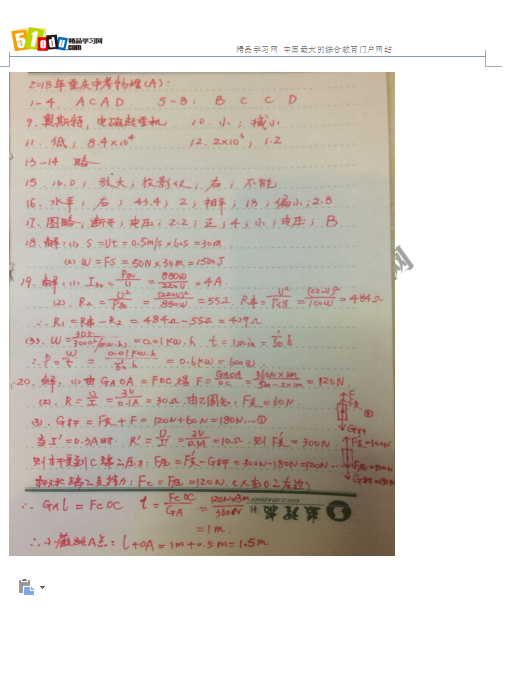 51edu 精品学习网
精品学习网 中国最大的综合教育门户网站
2018年重庆中考物理(A):
1-4. A C A D 5-8: B C C D
9. 奥斯特; 电磁起重机 10. 小; 减小
11. 低; 8.4×10⁴ 12. 2×10³; 1.2
13-14. 略
15. 10.0; 放大; 投影仪; 右; 不能
16. 水平; 右; 43.4; 2; 相平; 18; 偏小; 2.8
17. 图略; 断开; 电压; 2.2; 正; 4; 小; 电压; B
18. 解: (1) S=Vt=0.5m/s×60s=30m
(2) W=FS=50N×30m=1500J
19. 解: (1) I=P/U=880W/220V=4A
(2). R₂=U²/P=(220V)²/880W=55Ω R=U²/P=(220V)²/100W=484Ω
∴R₁=R串-R₂=484Ω-55Ω=429Ω
(3). W=30r/3000r/(kw.h)=0.01kw.h t=1min=1/60 h
∴P=W/t=0.01kw.h/1/60 h=0.6kw=600W
20. 解: (1) 由GAOA=FOC得 F=GAOA/OC=120N
(2). R=U/I=3V/0.1A=30Ω. 由乙图知, F支=60N
(3). G杆=F支+F=120N+60N=180N…①
当I'=0.3A时. R'=U/I'=3V/0.3A=10Ω. 则F支=300N
F压=F支'-G杆=300N-180N=120N
Fc=F压=120N.
∴GAl=FcOC l=FcOC/GA=120N×3m/360N
=1m.
l+OA=1m+0.5m=1.5m
网